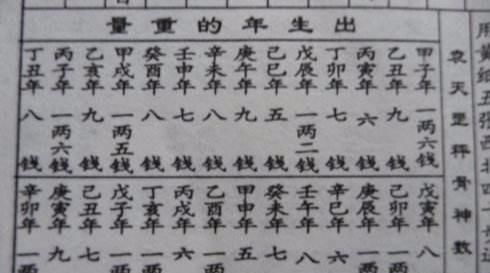 用黄纸五张西北四十步
袁天罡秤骨神数
出生年的重量
甲子年 一两六钱
乙丑年 九钱
丙寅年 六钱
丁卯年 七钱
戊辰年 一两二钱
己巳年 五钱
庚午年 九钱
辛未年 八钱
壬申年 七钱
癸酉年 八钱
甲戌年 一两五钱
乙亥年 九钱
丙子年 一两六钱
丁丑年 八钱
戊寅年 八
己卯年 一两
庚辰年 一两
辛巳年 六
壬午年 八
癸未年 七
甲申年 五
乙酉年 一两
丙戌年 六
丁亥年 一两
戊子年 一两
己丑年 七
庚寅年 九
辛卯年 一两